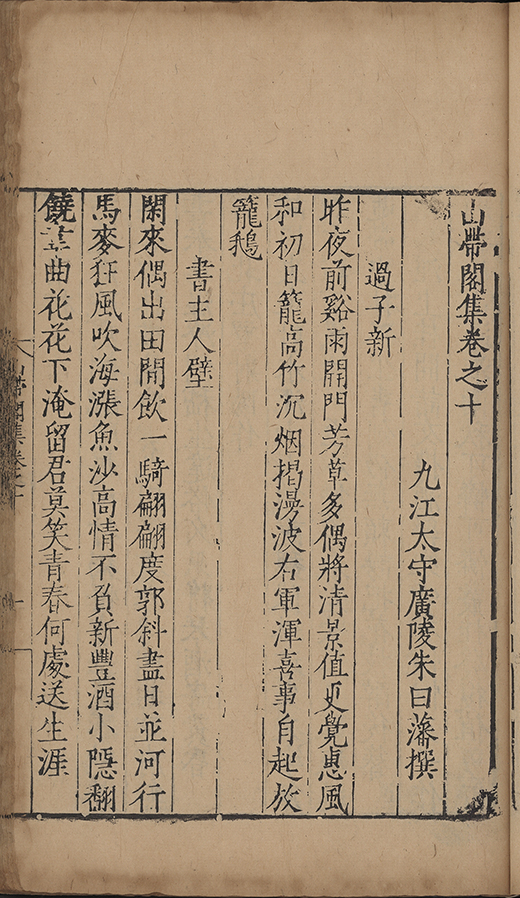 山帶閣集卷之十
九江太守廣陵朱曰藩撰
過子新
昨夜前谿雨開門芳草多偶將清景值更覺惠風
和初日籠高竹沉烟揭漫波右軍渾喜事自起放
籠鵝
書主人壁
閑來偶出田間飲一騎翩翩度郭斜盡日並河行
馬麥狂風吹海漲魚沙高情不負新豐酒小隱翻
饒曲花花下淹留君莫笑青春何處送生涯
山帶閣集卷之十 一